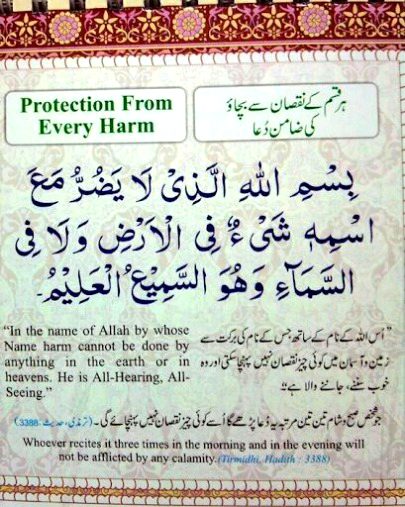 Protection From
Every Harm
ہر قسم کے نقصان سے بچاؤ
کی ضامن دُعا
بِسْمِ اللهِ الَّذِىْ لَا يَضُرُّ مَعَ
اسْمِهٖ شَىْءٌ فِى الْاَرْضِ وَلَا فِى
السَّمَآءِ وَهُوَ السَّمِيْعُ الْعَلِيْمُ۔
"In the name of Allah by whose
Name harm cannot be done by
anything in the earth or in
heavens. He is All-Hearing, All-
Seeing."
"اُس اللہ کے نام کے ساتھ جس کے نام کی برکت سے
زمین و آسمان میں کوئی چیز نقصان نہیں پہنچا سکتی اور وہ
خوب سننے، جاننے والا ہے"
جو شخص صبح و شام تین تین مرتبہ یہ دُعا پڑھے گا اُسے کوئی چیز نقصان نہیں پہنچائے گی۔ (ترمذی، حدیث: 3388)
Whoever recites it three times in the morning and in the evening will
not be afflicted by any calamity. (Tirmidhi, Hadith : 3388)